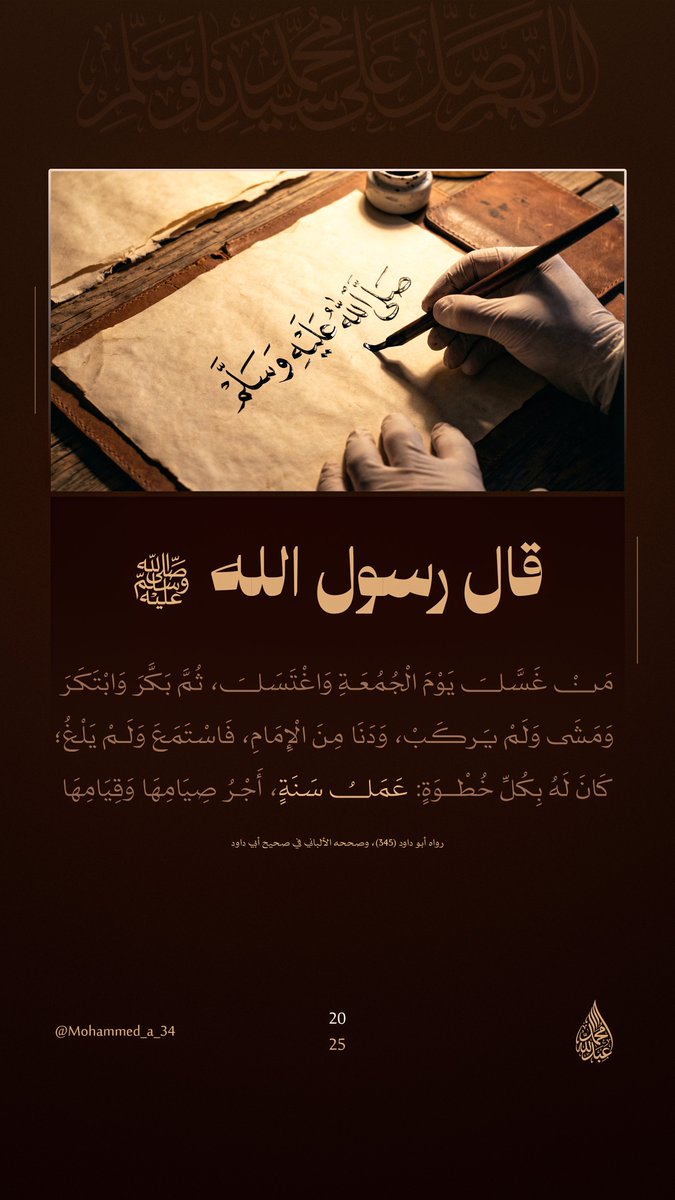 اللهم صل على سيدنا محمد وسلم
صَلَّى اللّٰه عَلَيْهِ وَسَلَّمَ
قال رسول الله ﷺ
مَنْ غَسَّلَ يَوْمَ الْجُمُعَةِ وَاغْتَسَلَ، ثُمَّ بَكَّرَ وَابْتَكَرَ
وَمَشَى وَلَمْ يَركَبْ، وَدَنَا مِنَ الْإِمَامِ، فَاسْتَمَعَ وَلَمْ يَلْغُ؛
كَانَ لَهُ بِكُلِّ خُطْوَةٍ: عَمَلُ سَنَةٍ، أَجْرُ صِيَامِهَا وَقِيَامِهَا
رواه أبو داود (345)، وصححه الألباني في صحيح أبي داود
@Mohammed_a_34
20
25
محمد عبدالله